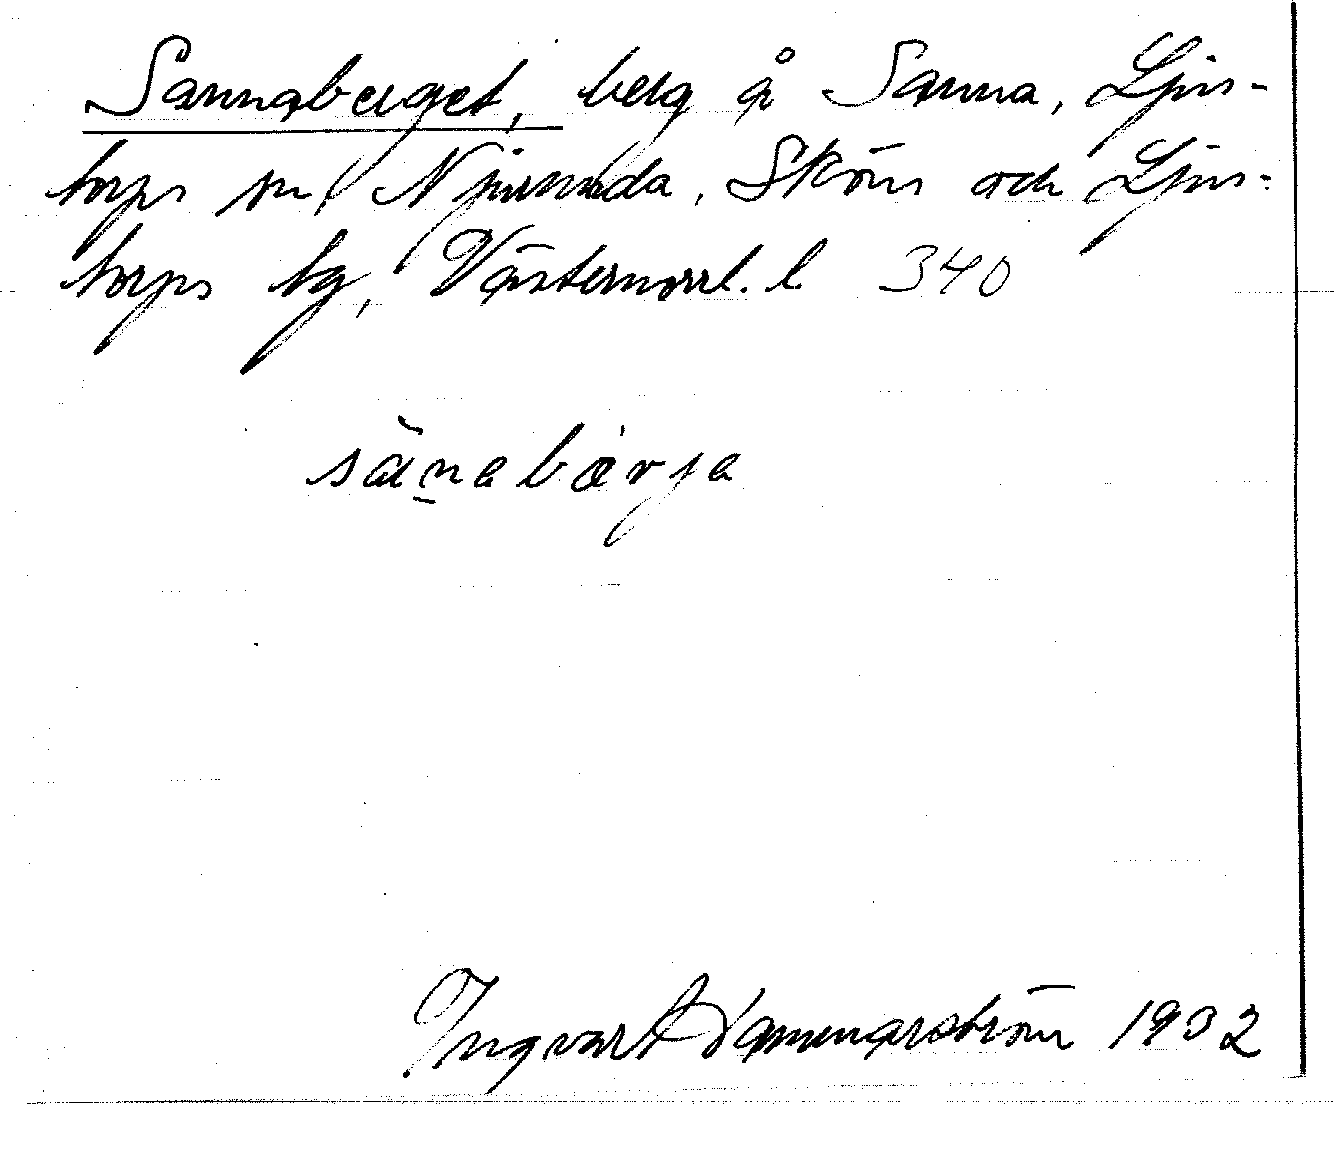 Sannaberget, berg å Sanna, Ljus-
torps sn, Njurunda, Sköns och Ljus-
torps tg, Västernorrl. l 340
sànabàrja
Ingvart Hammarström 1932